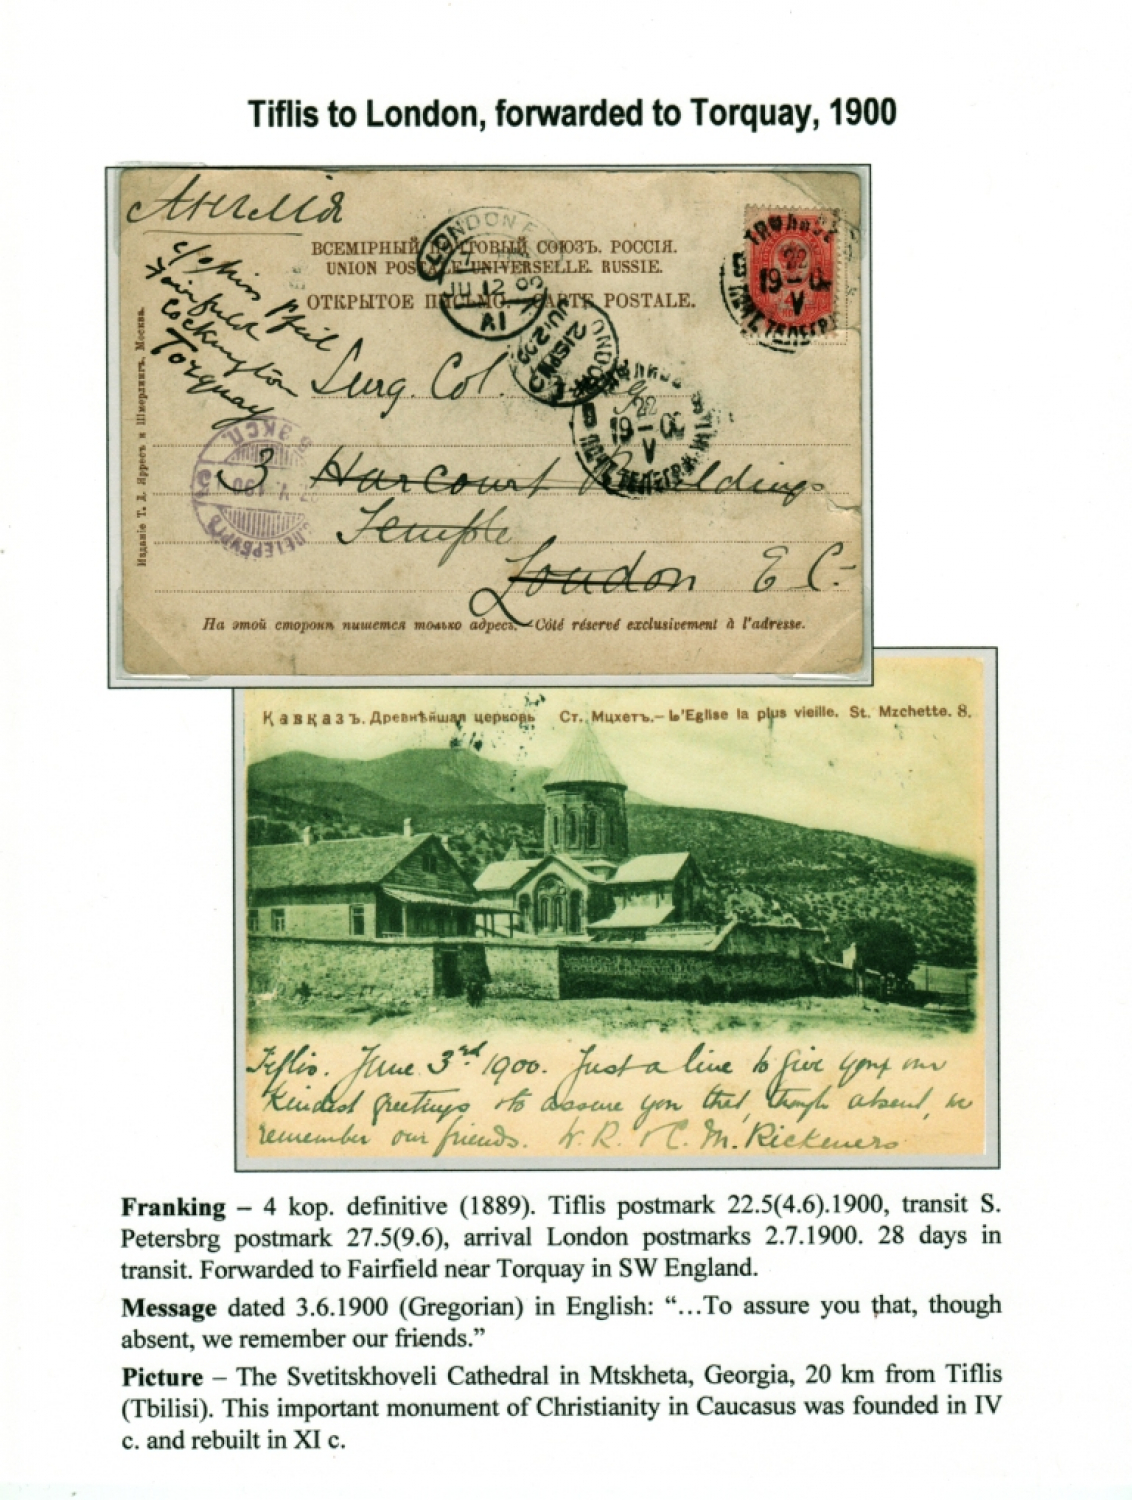 Tiflis to London, forwarded to Torquay, 1900
Англія
c/o Miss Pfeil
Fairfield
Cockington
Torquay
ВСЕМІРНЫЙ ПОЧТОВЫЙ СОЮЗЪ. РОССІЯ.
UNION POSTALE UNIVERSELLE. RUSSIE.
ОТКРЫТОЕ ПИСЬМО.—CARTE POSTALE.
LONDON
JU 12
A1
ТИФЛИСЪ
22
19-00
V
ПОЧТ. ТЕЛЕГР.
22
19-00
V
Surg. Col.
3 Harcourt Buildings
Temple
London E C.
С.ПЕТЕРБУРГЪ
ЭКСП.
Изданіе Т. Д. Ярресъ и Шмерлингъ. Москва.
На этой сторонѣ пишется только адресъ.—Côté réservé exclusivement à l'adresse.
Кавказъ. Древнѣйшая церковь Ст. Мцхетъ.—L'Eglise la plus vieille. St. Mzchette. 8.
Tiflis. June 3rd 1900. Just a line to give you our
kindest greetings & to assure you that, though absent, we
remember our friends. W. R. & C. M. Rickmers
Franking – 4 kop. definitive (1889). Tiflis postmark 22.5(4.6).1900, transit S.
Petersbrg postmark 27.5(9.6), arrival London postmarks 2.7.1900. 28 days in
transit. Forwarded to Fairfield near Torquay in SW England.
Message dated 3.6.1900 (Gregorian) in English: “…To assure you that, though
absent, we remember our friends.”
Picture – The Svetitskhoveli Cathedral in Mtskheta, Georgia, 20 km from Tiflis
(Tbilisi). This important monument of Christianity in Caucasus was founded in IV
c. and rebuilt in XI c.